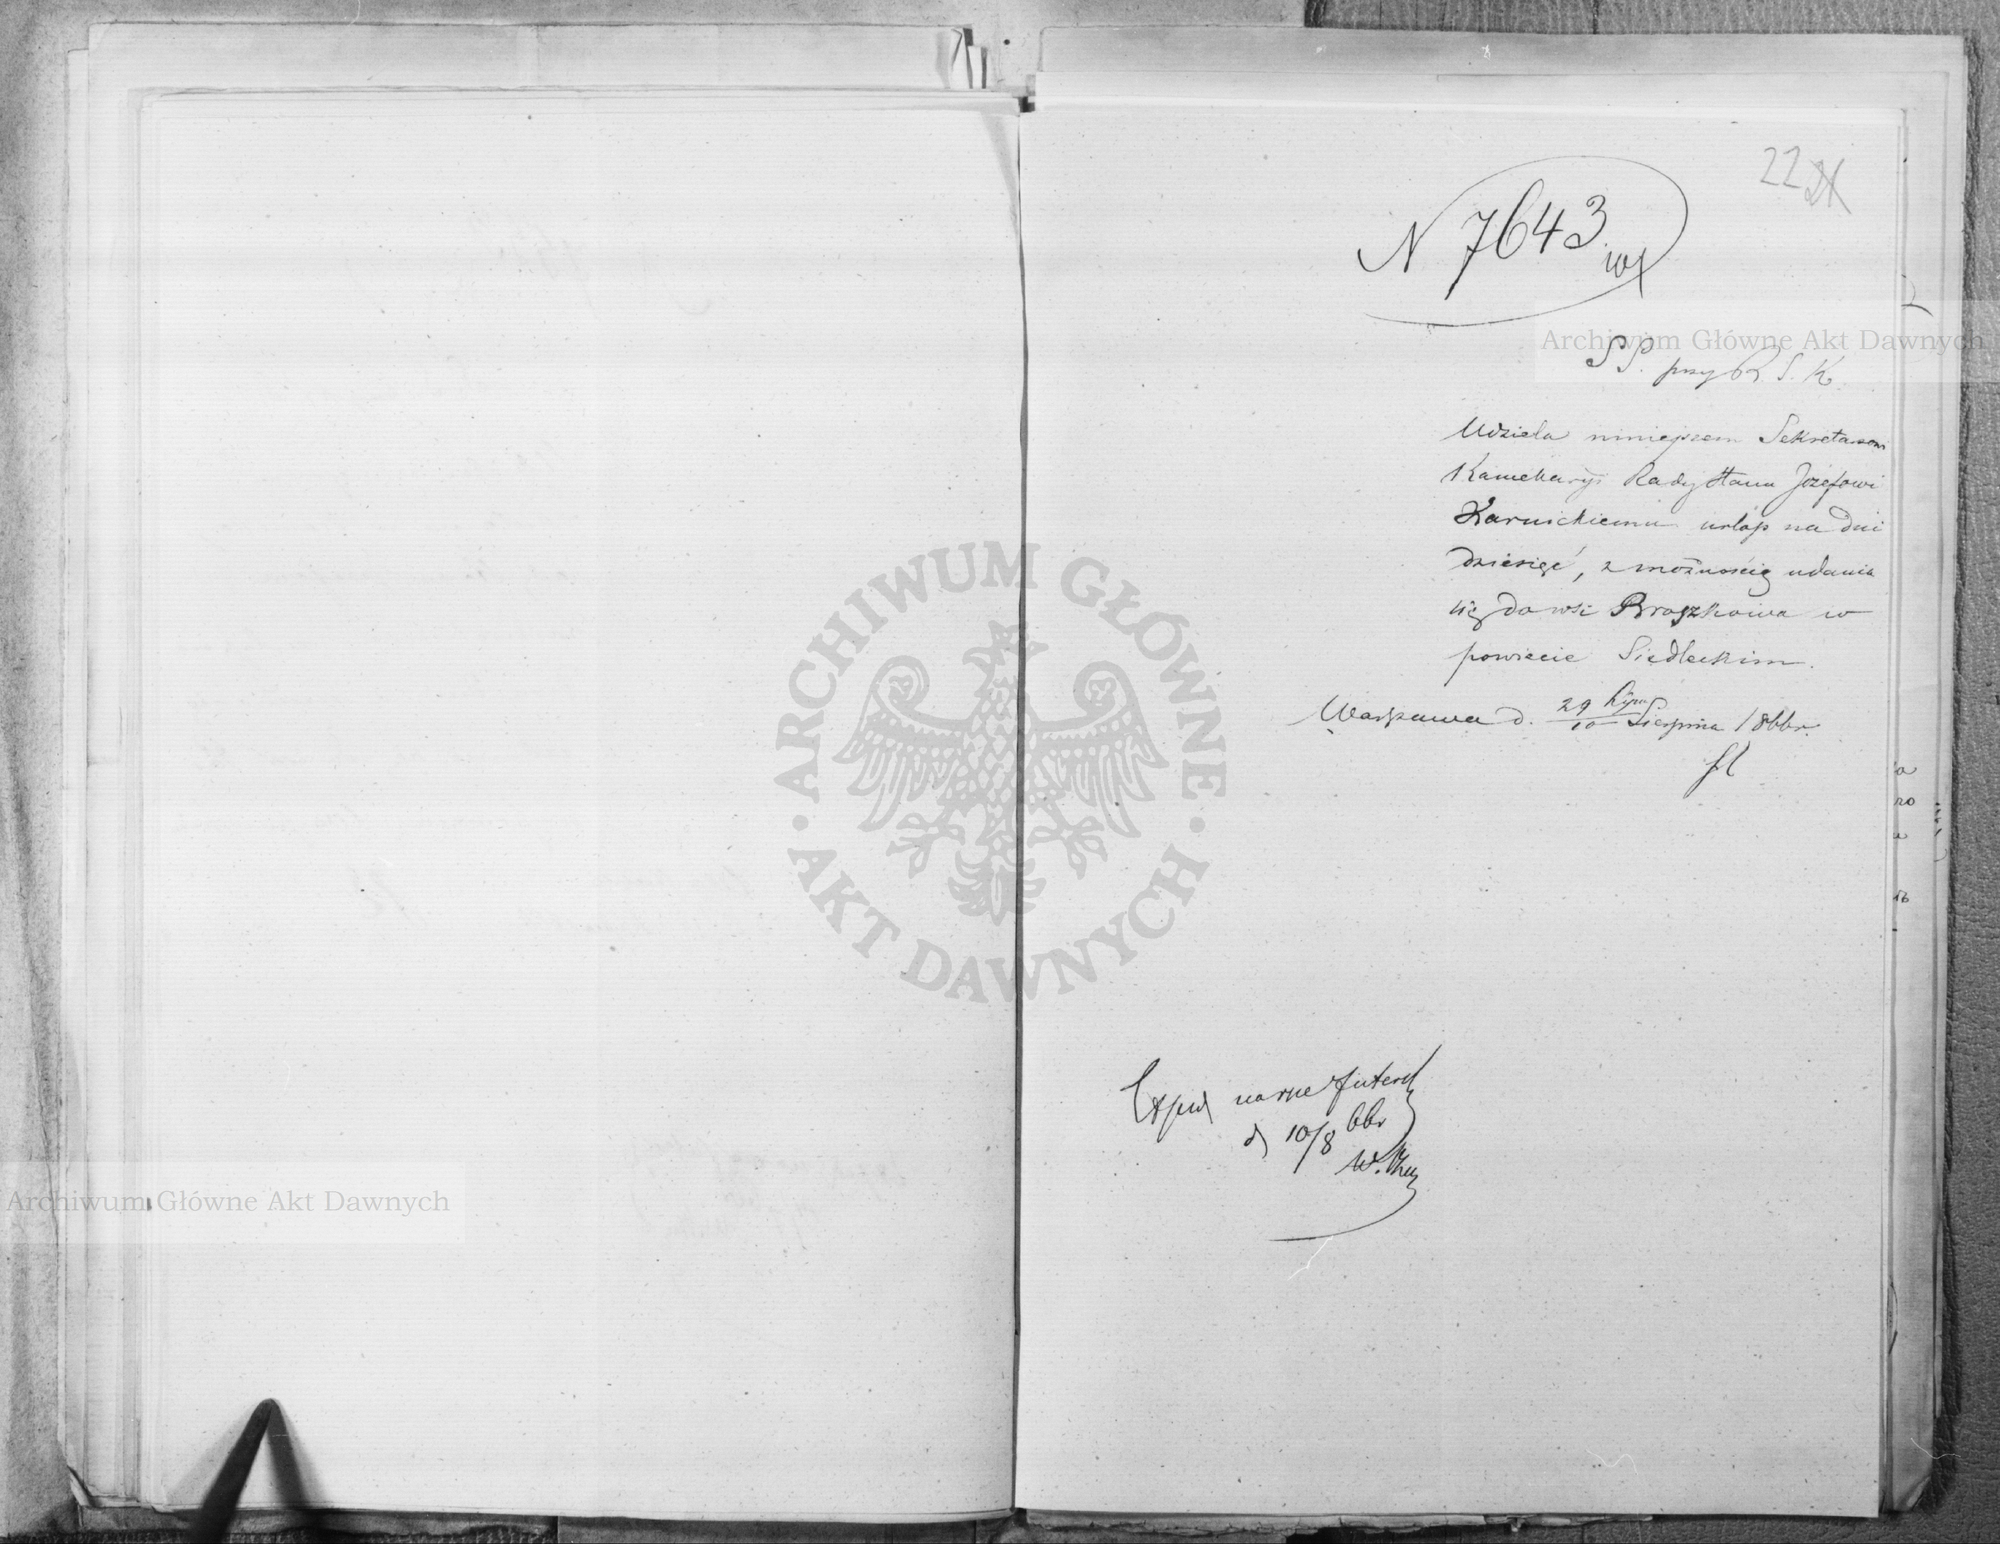 22
N 7643
SP. przy R. S. K.
Udziela niniejszem Sekretarzowi
Kancellaryi Rady Stanu Józefowi
Karnickiemu urlop na dni
dziesięć, z możnością udania
się do wsi Broszkowa w
powiecie Siedleckim.
Warszawa d. 29 Lipca / 10 Sierpnia 1866 r.
Exped na ręce Interes
d 10/8 66 r
W.
Archiwum Główne Akt Dawnych
Archiwum Główne Akt Dawnych
ARCHIWUM GŁÓWNE AKT DAWNYCH